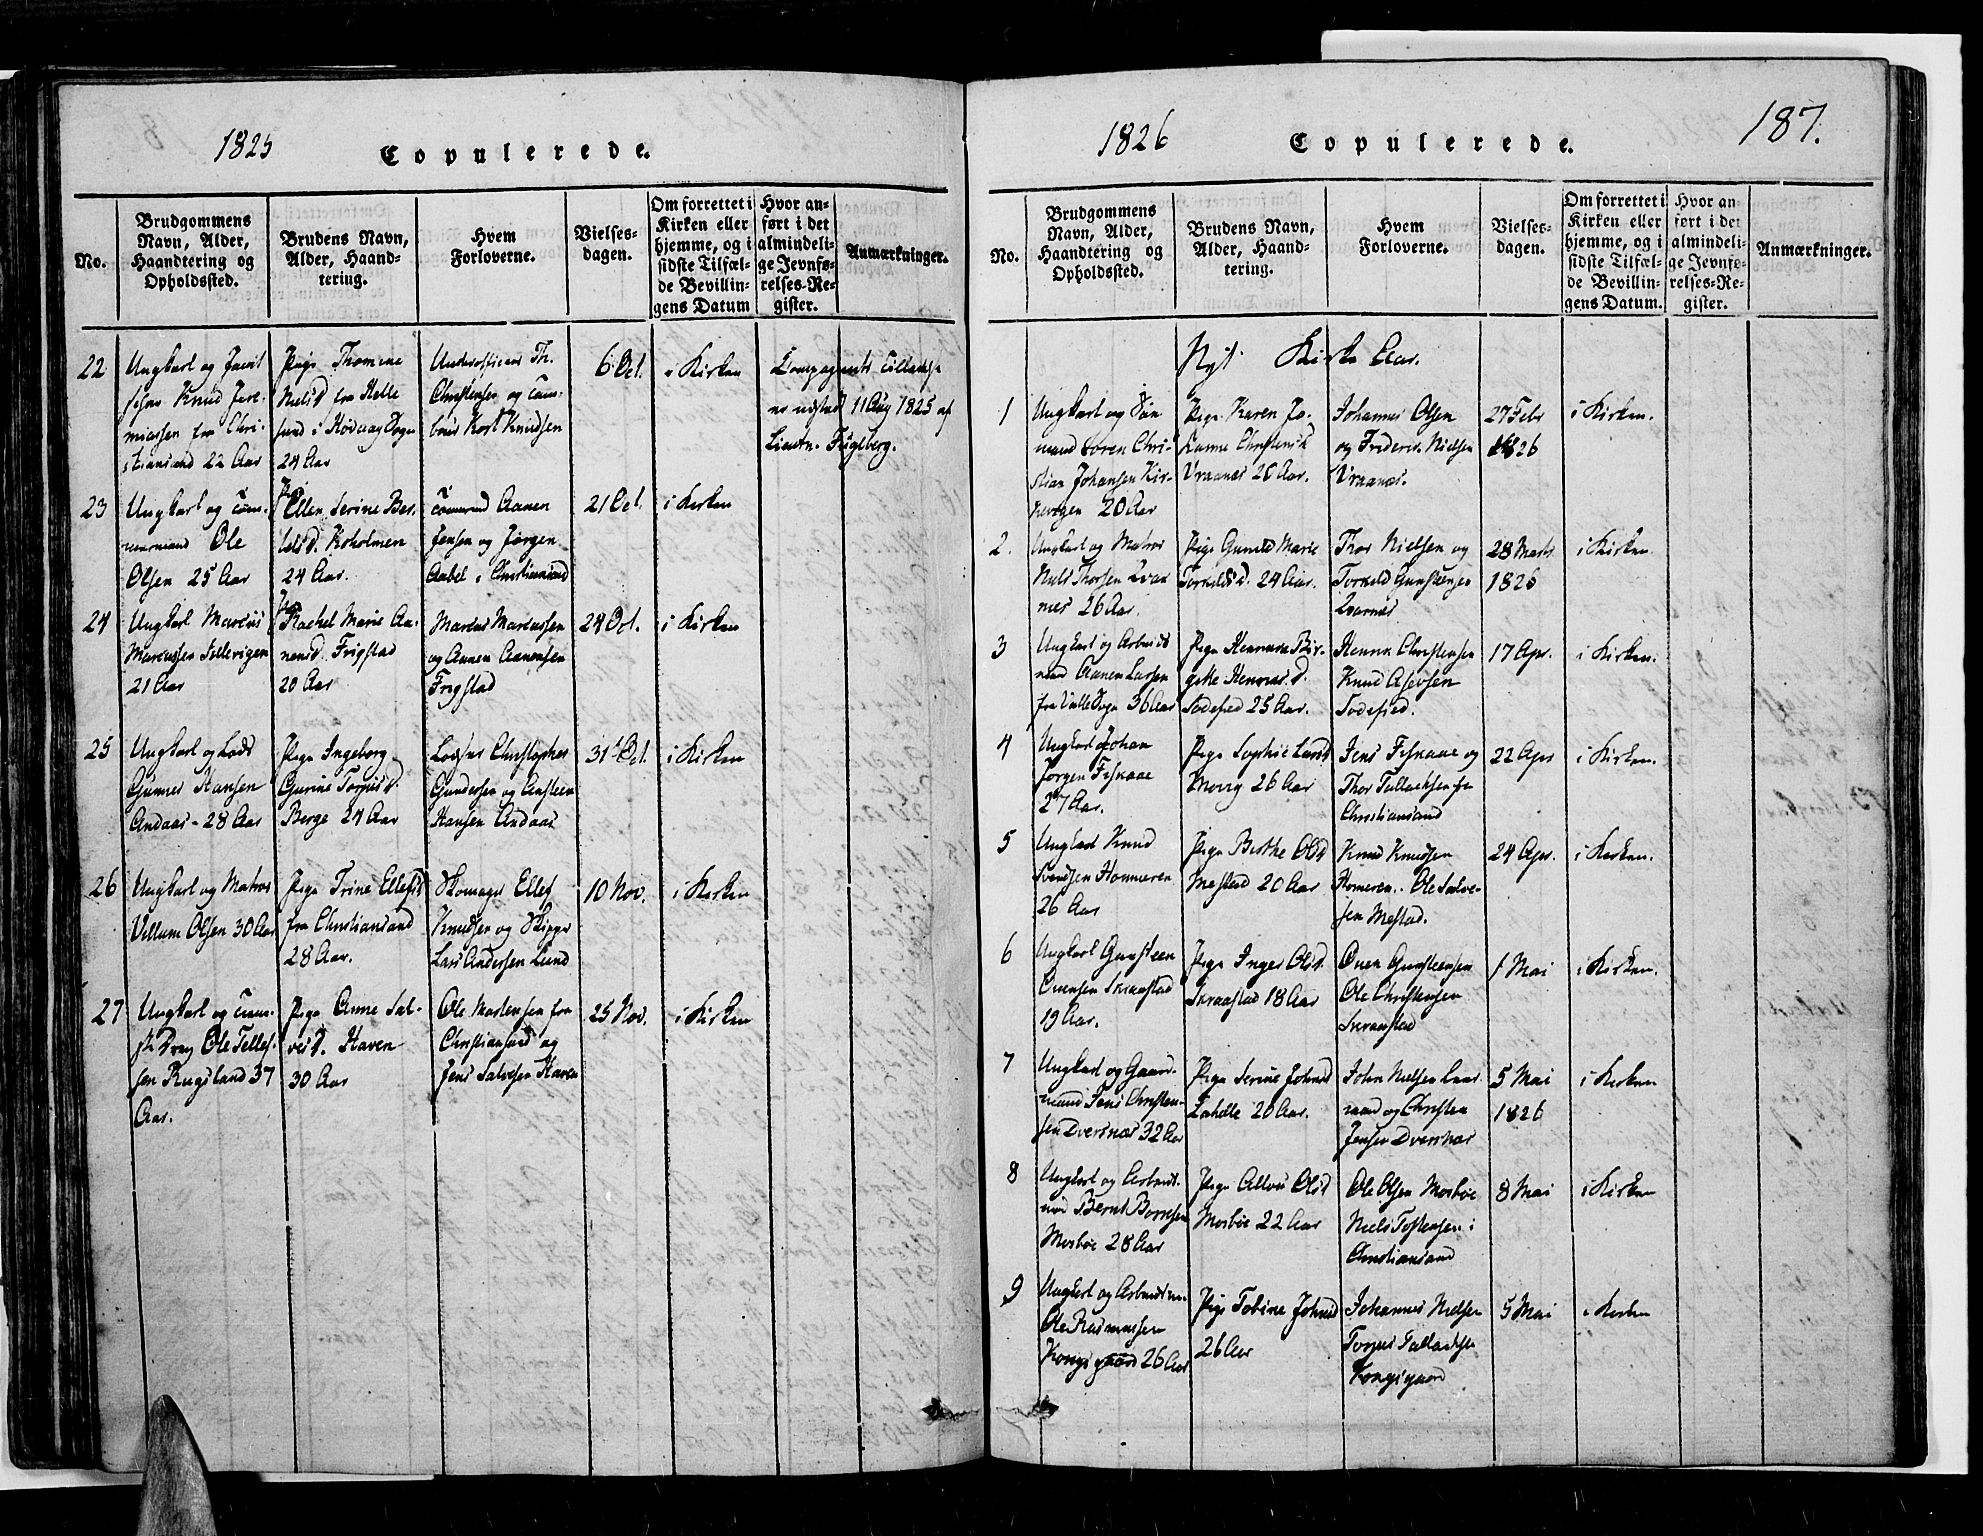 1825
Copulerede.
No.
Brudgommens
Navn, Alder,
Haandtering og
Opholdssted.
Brudens Navn,
Alder, Haand-
tering.
Hvem
Forloverne.
Vielses-
dagen.
Om forrettet i
Kirken eller
hjemme, og i
sidste Tilfæl-
de Bevillin-
gens Datum
Hvor an-
ført i det
almindeli-
ge Jevnfø-
relses-Re-
gister.
Anmærkninger.
22
Ungkarl og
Knud Jere-
miassen fra Chri-
stiansand 22 Aar
Pige Thomine
Nielsd fra Helle
sund i Høvaag Sogn
24 Aar
Underofficeer Th.
Christensen og Tøm-
Kort Knudsen
6 Oct.
i Kirken
Compagniets Tilladelse
er udstæd 11 Aug 1825 af
Lieutn. Fuglberg.
23
Ungkarl og Tøm-
mermand Ole
Olsen 25 Aar
Pige
Ellen Serine Ber-
telsd. Koholmen
24 Aar.
Tømmermd Aanen
Jensen og Jørgen
Aabel i Christiansand
21 Oct.
i Kirken
24
Ungkarl Marcus
Marcussen Tellevigen
21 Aar
Pige
Rachel Marie Aa-
nensd. Frigstad
20 Aar
Marcus Marcussen
og Aanen Aanensen
Frigstad
24 Oct.
i Kirken
25
Ungkarl og Lods
Gunner Hansen
Andaas - 28 Aar
Pige Ingeborg
Gurine Torjusd.
Berge 24 Aar
Lodser Christopher
Gundersen og Ansteen
Hansen Andaas
31t Oct.
i Kirken
26
Ungkarl og Matros
Villum Olsen 30 Aar
Pige Trine Ellefsd
fra Christiansand
28 Aar.
Skomager Ellef
Knudsen og Skipper
Lars Andersen Lund
10 Nov.
i Kirken
27
Ungkarl og Tøm-
Ole Tellef-
sen Rugsland 37
Aar.
Pige Anne Sal-
vesd. Haven
30 Aar
Ole Mortensen fra
Christiansand og
Jens Salvesen Haven
25 Nov.
i Kirken
1826
Copulerede.
187.
No.
Brudgommens
Navn, Alder,
Haandtering og
Opholdssted.
Brudens Navn,
Alder, Haand-
tering.
Hvem
Forloverne.
Vielses-
dagen.
Om forrettet i
Kirken eller
hjemme, og i
sidste Tilfæl-
de Bevillin-
gens Datum.
Hvor an-
ført i det
almindeli-
ge Jevnfø-
relses-Re-
gister.
Anmærkninger.
Nyt Kirke Aar.
1
Ungkarl og Søe
mand Søren Chri-
stian Johansen Kir-
kevigen 20 Aar
Pige Karen Jo-
hanne Christensd
Vraanes 20 Aar.
Johannes Olsen
og Frederik Nielsen
Vraanes.
27 Febr
1826
i Kirken.
2.
Ungkarl og Matros
Niels Thorsen Qvar
nes 26 Aar.
Pige Gunild Marie
Torkildsd. 24 Aar.
Thor Nielsen og
Torkild Gunstensen
Qvarnes
28 Marts
1826
i Kirken.
3
Ungkarl og Arbeids
mand Aanen Larsen
fra Valle Sogn 36 Aar
Pige Henrikke Bir-
gitte Henriksd.
Todefied 25 Aar.
Henrik Christensen
Knud Asevsen
Todefied.
17 Apr.
i Kirken.
4
Ungkarl Johan
Jørgen Fiskaae
27 Aar.
Pige Sophie Larsd
Moeg 26 Aar
Jens Fiskaae og
Thor Tallachsen fra
Christiansand
22 Apr
i Kirken.
5
Ungkarl Knud
Svendsen Hommeren
26 Aar
Pige Berthe Olsd
Mestad 20 Aar
Knud Knudsen
Homeren. Ole Salve-
sen Mestad.
24 Apr.
i Kirken.
6
Ungkarl Gunsteen
Ouensen Straastad
19 Aar.
Pige Inger Olsd.
Straastad 18 Aar
Ouen Gunsteensen
Ole Christensen
Straastad
1 Mai
i Kirken.
7
Ungkarl og Gaard-
mand Jens Christen-
sen Dversnæs 32 Aar
Pige Serine Johnsd
Lahelle 20 Aar.
John Nielsen
og Christen
Jensen Dversnæs
5 Mai
1826
i Kirken
8
Ungkarl og Arbeids-
md Bernt Berntsen
Mosbøe 28 Aar
Pige Olsd
Mosbøe 22 Aar
Ole Olsen Mosbøe
Niels Tostensen i
Christiansand
8 Mai
i Kirken
9
Ungkarl og Arbeidsm.
Ole Rasmussen
Kongsgaard 26 Aar
Pige Tobine Johnsd
26 Aar
Johannes Nielsen
Torjus Tallachsen
Kongsgaard
5 Mai
i Kirken